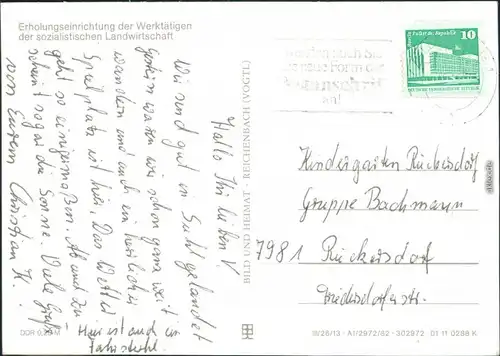 Erholungseinrichtung der Werktätigen
der sozialistischen Landwirtschaft
Hallo Ihr lieben V.
Wir sind gut in Suhl gelandet
Gestern waren wir schon ganz weit
wandern und auch ein herrlicher
Spielplatz ist hier. Das Wetter
geht so einigermaßen. Ab und zu
scheint sogar die Sonne. Viele Grüße
von Eurem Christian K.
Hier ist auch ein
Fahrstuhl.
DDR 0,20 M
BILD UND HEIMAT · REICHENBACH (VOGTL)
10
DEUTSCHE DEMOKRATISCHE REPUBLIK
Kindergarten Rückersdorf
Gruppe Bachmann
7981 Rückersdorf
Friedersdorferstr.
III/26/13 · A1/2972/82 · 302972 01 11 0288 K